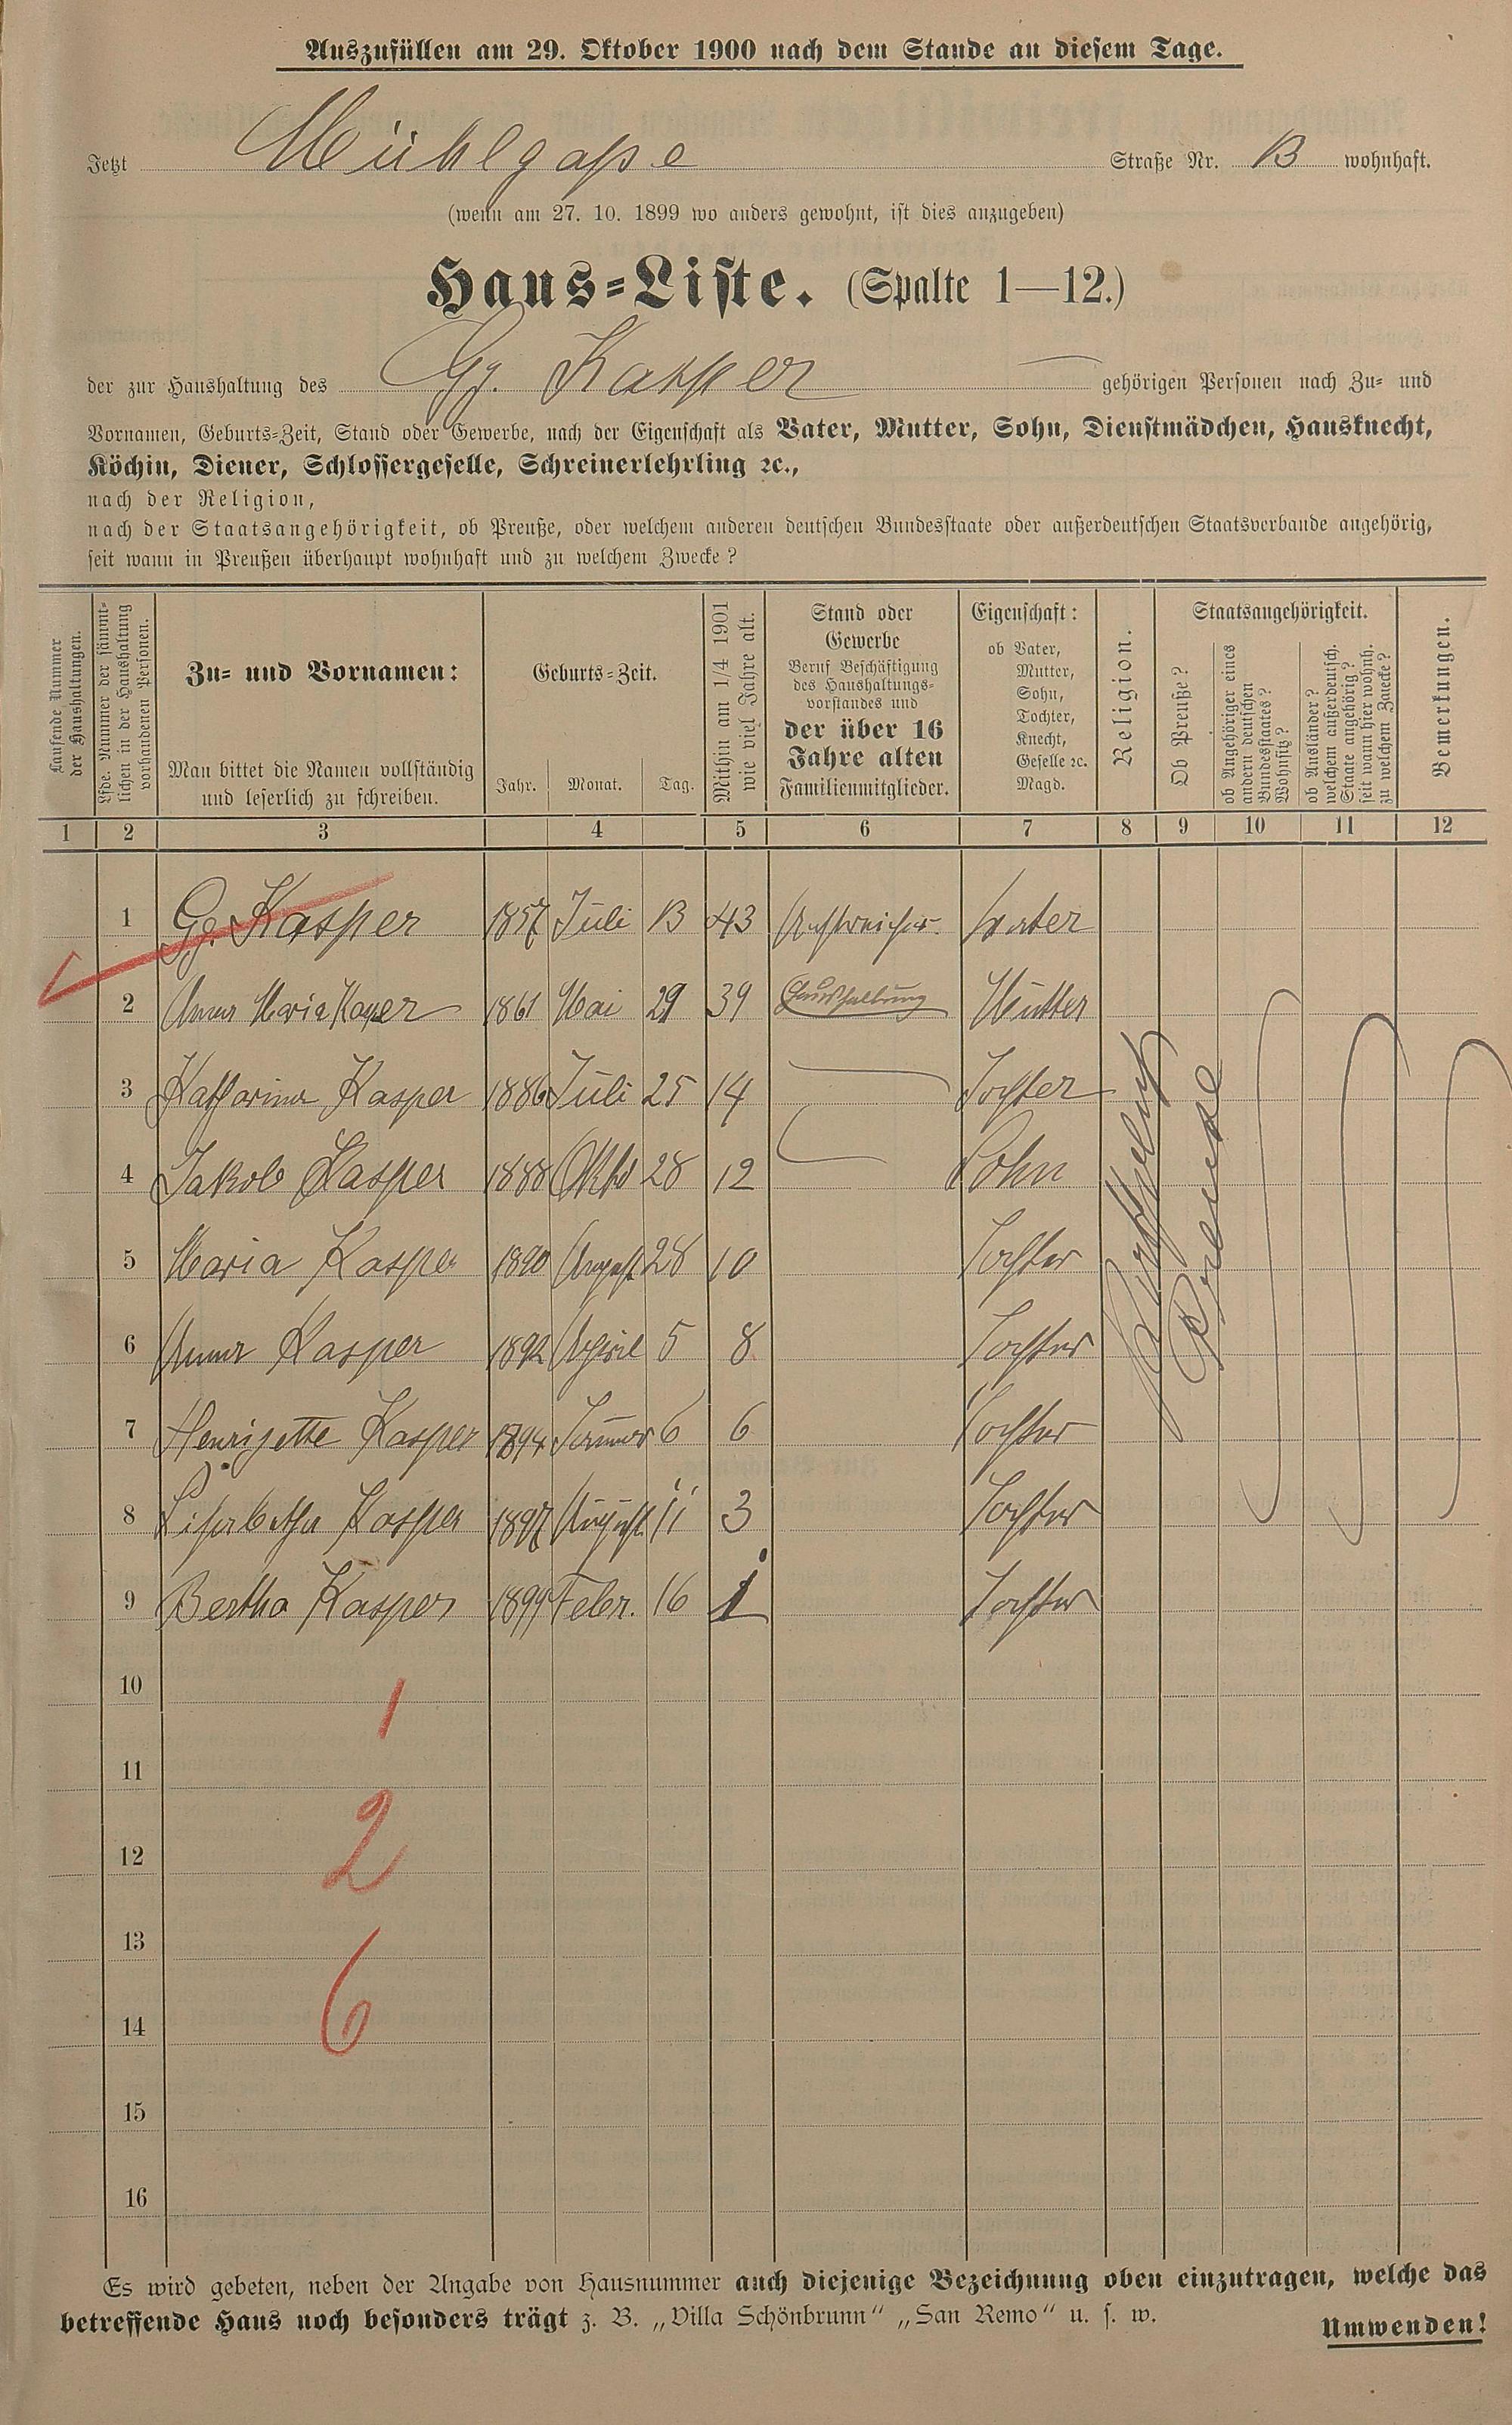 Auszufüllen am 29. Oktober 1900 nach dem Stande an diesem Tage.
Jetzt Mühlgaße Straße Nr. 13 wohnhaft.
(wenn am 27. 10. 1899 wo anders gewohnt, ist dies anzugeben)
Haus-Liste. (Spalte 1—12.)
der zur Haushaltung des Gg. Kasper gehörigen Personen nach Zu- und
Vornamen, Geburts-Zeit, Stand oder Gewerbe, nach der Eigenschaft als Vater, Mutter, Sohn, Dienstmädchen, Hausknecht,
Köchin, Diener, Schlossergeselle, Schreinerlehrling ꝛc.,
nach der Religion,
nach der Staatsangehörigkeit, ob Preuße, oder welchem anderen deutschen Bundesstaate oder außerdeutschen Staatsverbande angehörig,
seit wann in Preußen überhaupt wohnhaft und zu welchem Zwecke?
Laufende Nummer
der Haushaltungen.
Lfde. Nummer der sämmt-
lichen in der Haushaltung
vorhandenen Personen.
Zu- und Vornamen:
Man bittet die Namen vollständig
und leserlich zu schreiben.
Geburts-Zeit.
Jahr. Monat. Tag.
Mithin am 1/4 1901
wie viel Jahre alt.
Stand oder
Gewerbe
Beruf Beschäftigung
des Haushaltungs-
vorstandes und
der über 16
Jahre alten
Familienmitglieder.
Eigenschaft:
ob Vater,
Mutter,
Sohn,
Tochter,
Knecht,
Geselle ꝛc.
Magd.
Religion.
Staatsangehörigkeit.
Ob Preuße?
ob Angehöriger eines
andern deutschen
Bundesstaates?
Wohnsitz?
ob Ausländer?
welchem außerdeutsch.
Staate angehörig?
seit wann hier wohnh.
zu welchem Zwecke?
Bemerkungen.
1 2 3 4 5 6 7 8 9 10 11 12
1 Gg. Kasper 1857 Juli 13 43 Vater
2 Anna Maria Kasper 1861 Mai 29 39 Haushaltung Mutter
3 Katharina Kasper 1886 Juli 25 14 Tochter
4 Jakob Kasper 1888 Oktb 28 12 Sohn
5 Maria Kasper 1890 August 28 10 Tochter
6 Anna Kasper 1892 April 5 8 Tochter
7 Henrijette Kasper 1894 Januar 6 6 Tochter
8 Lisabetha Kasper 1897 August 11 3 Tochter
9 Bertha Kasper 1899 Febr. 16 1 Tochter
Katholisch
Preuße
10
1
11
2
12
13
6
14
15
16
Es wird gebeten, neben der Angabe von Hausnummer auch diejenige Bezeichnung oben einzutragen, welche das
betreffende Haus noch besonders trägt z. B. „Villa Schönbrunn" „San Remo" u. s. w.
Umwenden!